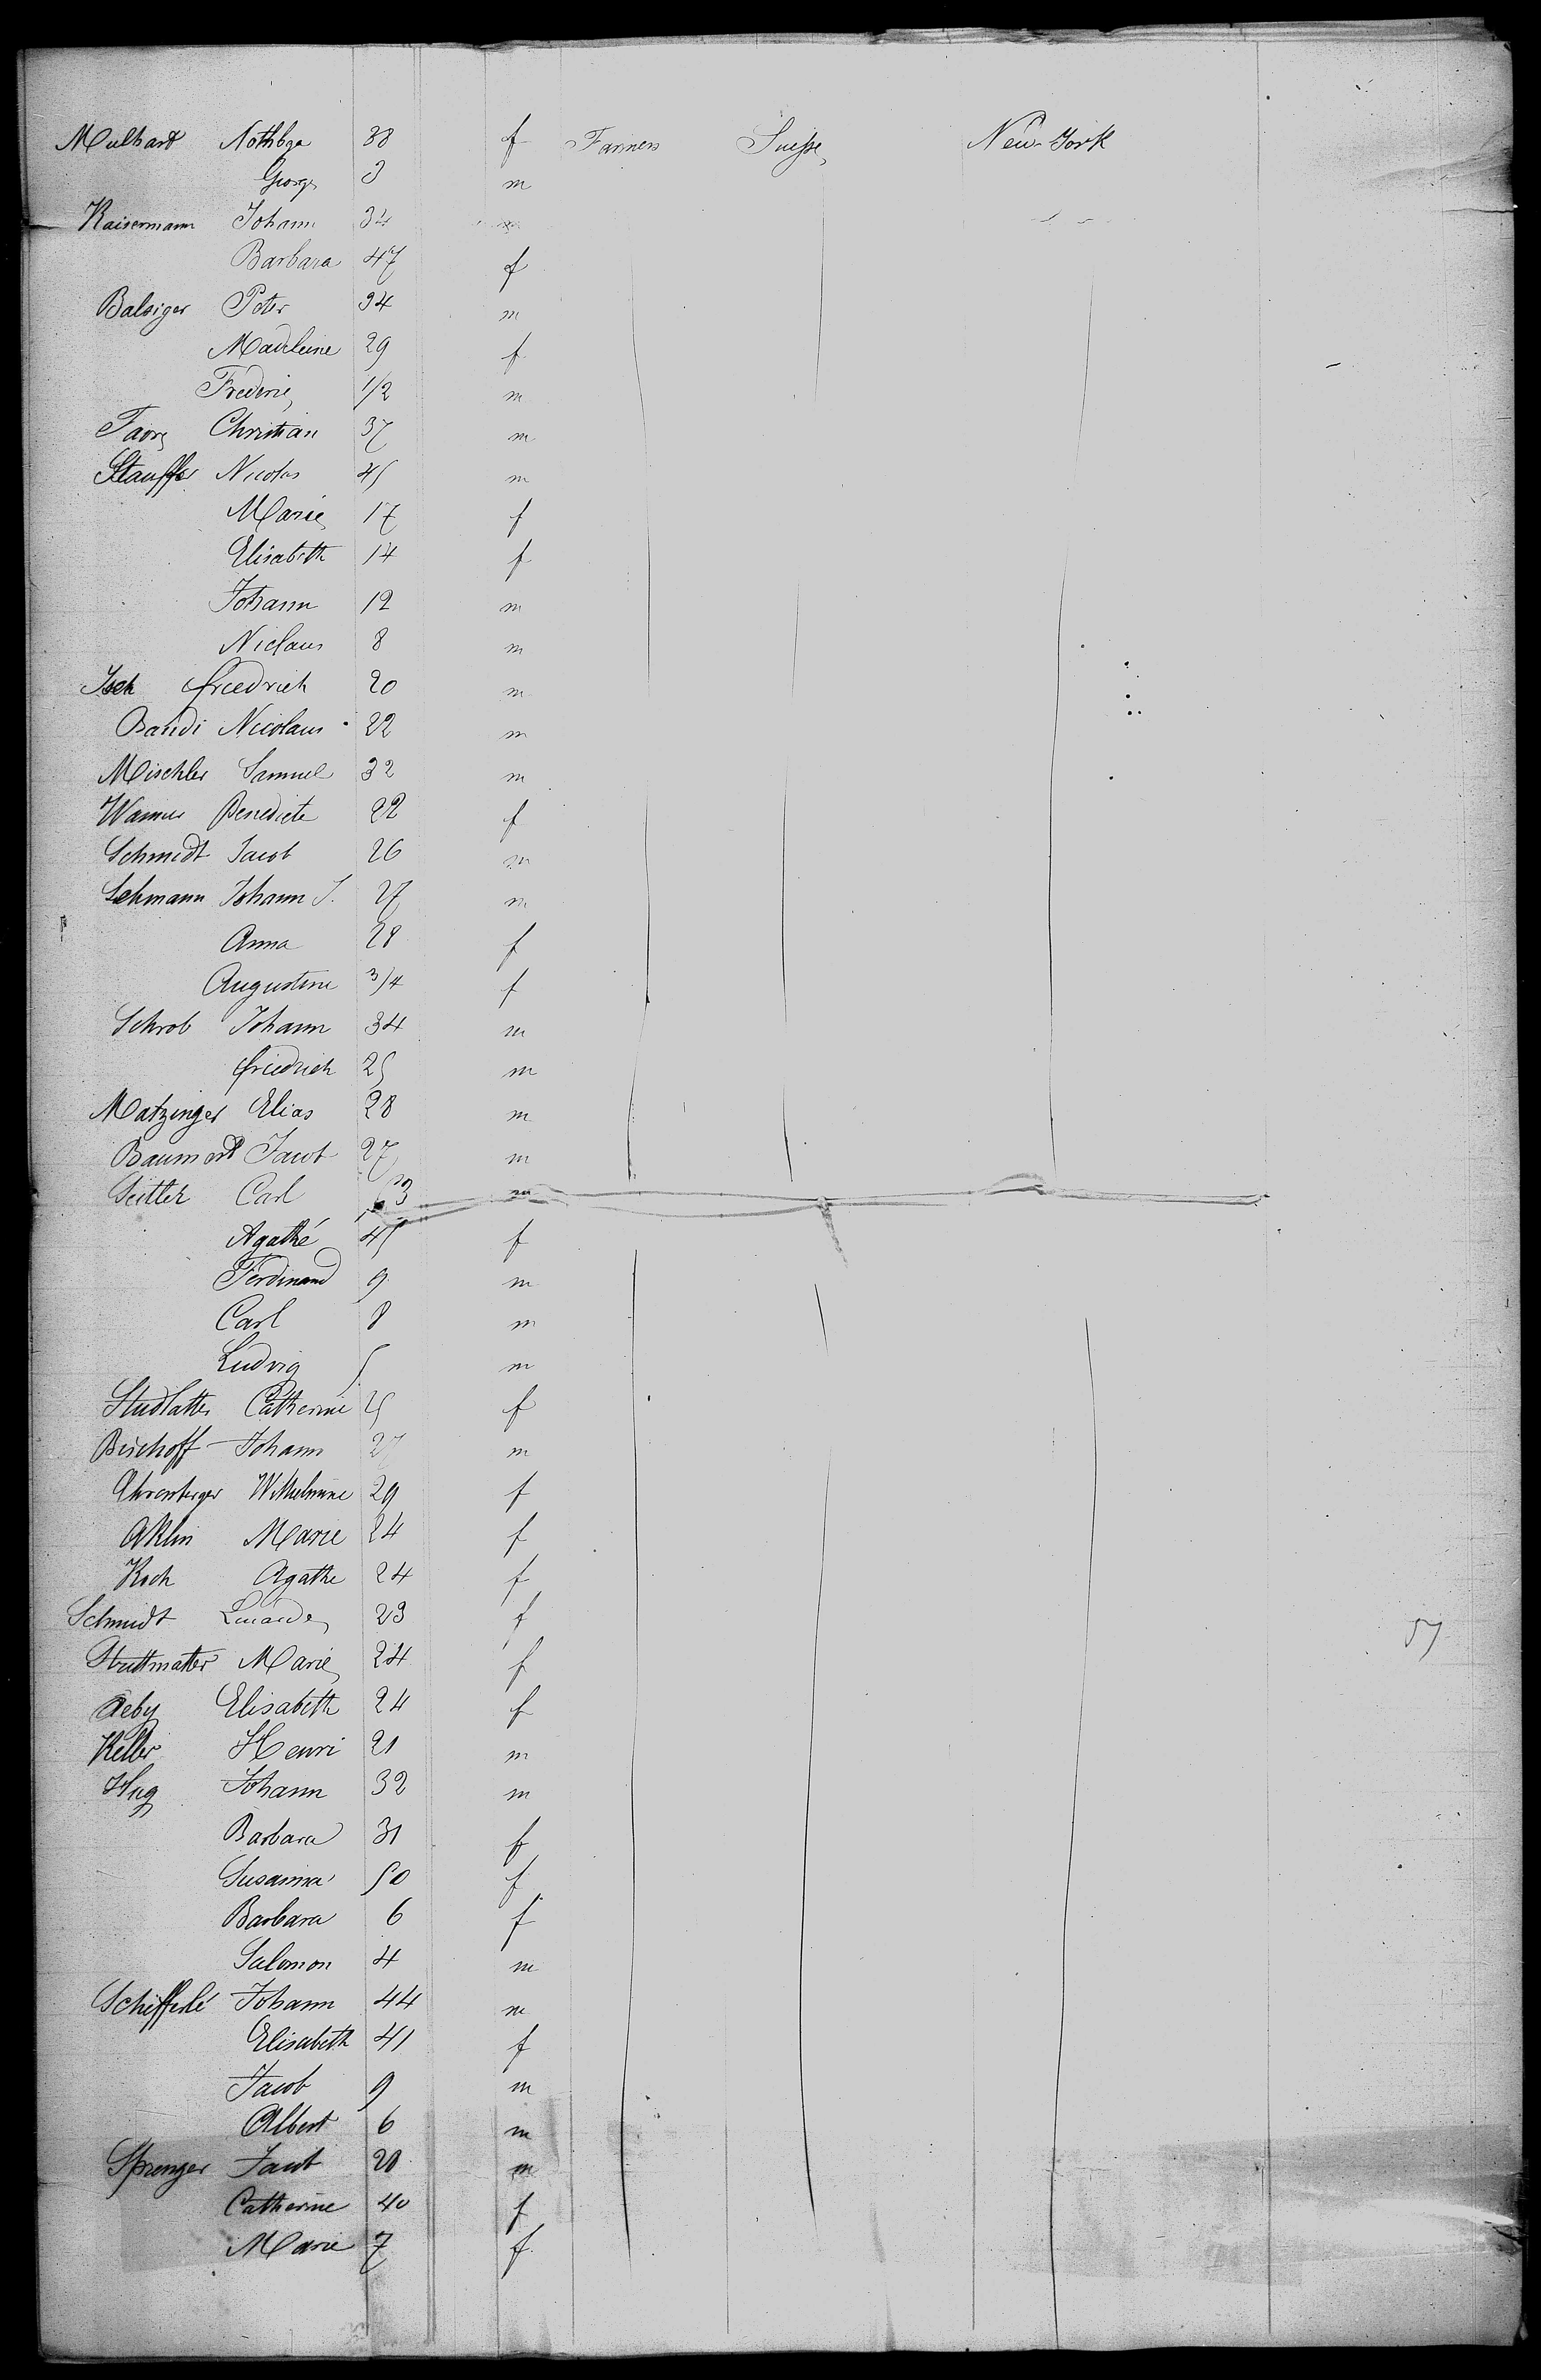 Mulhard Nothbga 38 f Farmers Suisse New-York
George 3 m
Kaisermann Johann 34 m
Barbara 47 f
Balsiger Peter 34 m
Madeleine 29 f
Frederic 1/2 m
Favre Christian 37 m
Stauffer Nicolas 45 m
Marie 17 f
Elisabeth 14 f
Johann 12 m
Niclaus 8 m
Isch Friedrich 20 m
Bandi Nicolaus 22 m
Mischler Samuel 32 m
Wanner Benedicte 22 f
Schmidt Jacob 26 m
Lehmann Johann J. 27 m
Anna 28 f
Augustine 3/4 f
Schrob Johann 34 m
Friedrich 25 m
Matzinger Elias 28 m
Jacob 27 m
Carl 63 m
Agathé 45 f
Ferdinand 9 m
Carl 8 m
Ludvig 5 m
Catherine 25 f
Bischoff Johann 27 m
Ehrenberger Wilhelmine 29 f
Aklin Marie 24 f
Koch Agathe 24 f
Schmidt 23 f
57
Struttmatter Marie 24 f
Aeby Elisabeth 24 f
Keller Henri 21 m
Hug Johann 32 m
Barbara 31 f
Susanna 50 f
Barbara 6 f
Salomon 4 m
Schifferlé Johann 44 m
Elisabeth 41 f
Jacob 9 m
Albert 6 m
Sprenger Jacob 20 m
Catherine 40 f
Marie 7 f